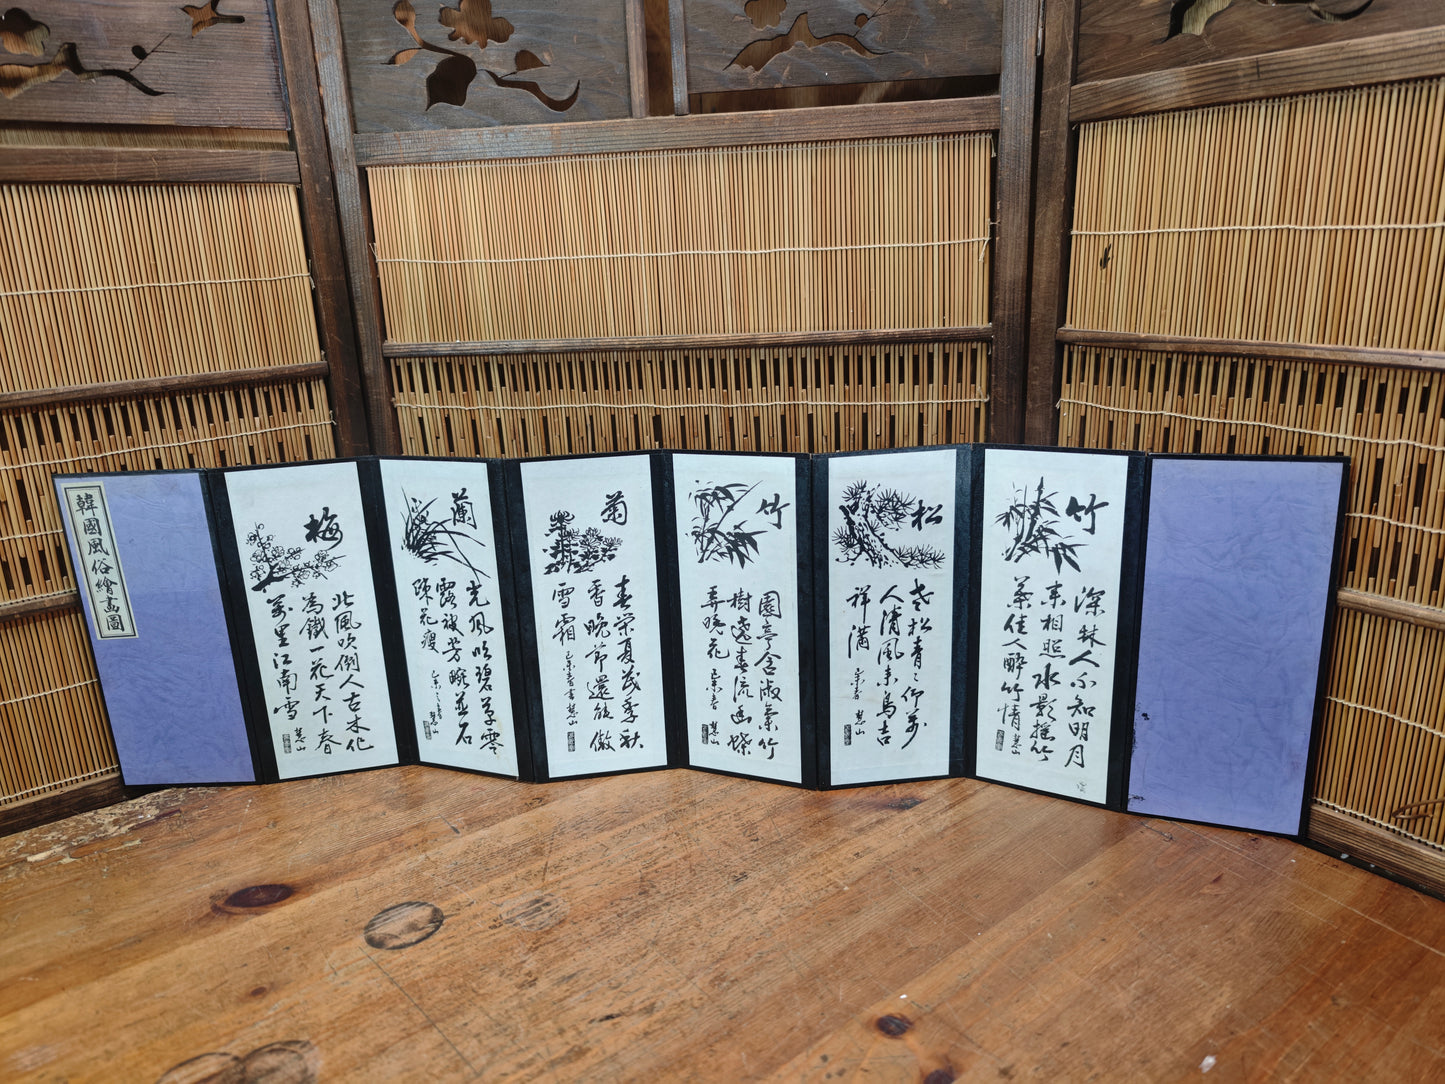 韓國風俗繪畫圖
梅
北風吹倒人古木化
為鐵一花天下春
萬里江南雪
慧山
蘭
光風吹碧草零
露被芳畹並石
疎花瘦
慧山
菊
春栄夏茂季秋
香晚節還能傲
雪霜
慧山
竹
園亭含淑氣竹
樹遶春流幽蝶
弄曉花
慧山
松
老松青々仰萬
人清風来鳥吉
祥滿
慧山
竹
深林人不知明月
来相照水影搖竹
葉佳人醉竹情
慧山